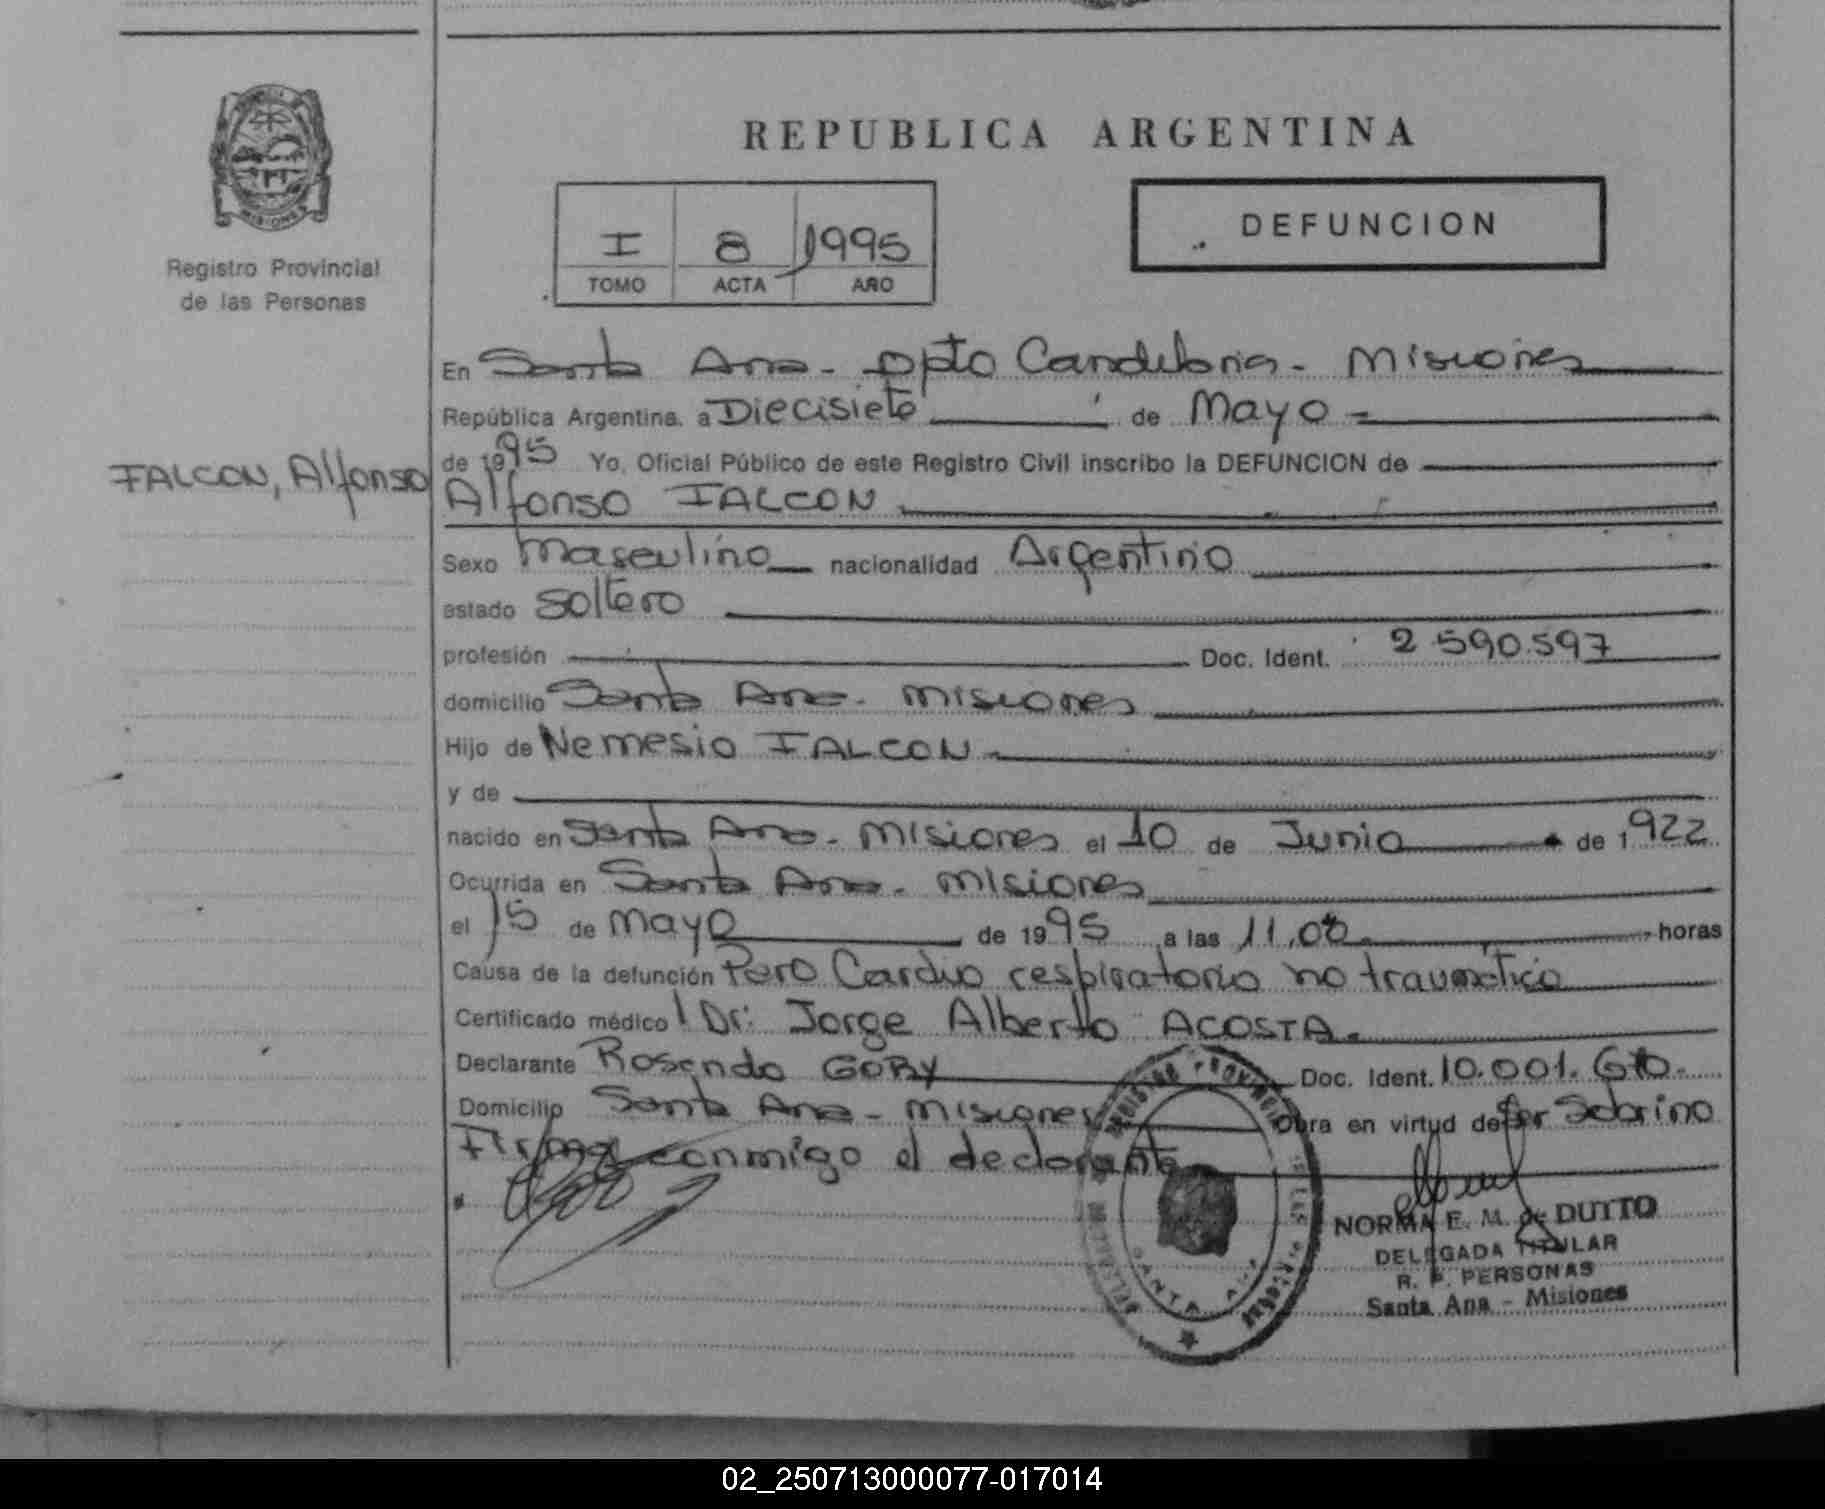 REPUBLICA ARGENTINA
MISIONES
Registro Provincial
de las Personas
I 8 1995
TOMO ACTA AÑO
DEFUNCION
En Santa Ana - Dpto Candelaria - Misiones
República Argentina, a Diecisiete de Mayo
de 1995 Yo, Oficial Público de este Registro Civil inscribo la DEFUNCION de
FALCON, Alfonso
Alfonso FALCON
Sexo Masculino nacionalidad Argentino
estado Soltero
profesión Doc. Ident. 2.590.597
domicilio Santa Ana - Misiones
Hijo de Nemesio FALCON
y de
nacido en Santa Ana - Misiones el 10 de Junio de 1922
Ocurrida en Santa Ana - Misiones
el 15 de Mayo de 1995 a las 11,00 horas
Causa de la defunción Paro Cardio respiratorio no traumático
Certificado médico Dr: Jorge Alberto ACOSTA.
Declarante Rosendo GORY Doc. Ident. 10.001.
Domicilio Santa Ana - Misiones Obra en virtud de Ser Sobrino
Firma conmigo el declarante
NORMA E. M. de DUTTO
DELEGADA TITULAR
R. P. PERSONAS
Santa Ana - Misiones
SANTA ANA
02_250713000077-017014